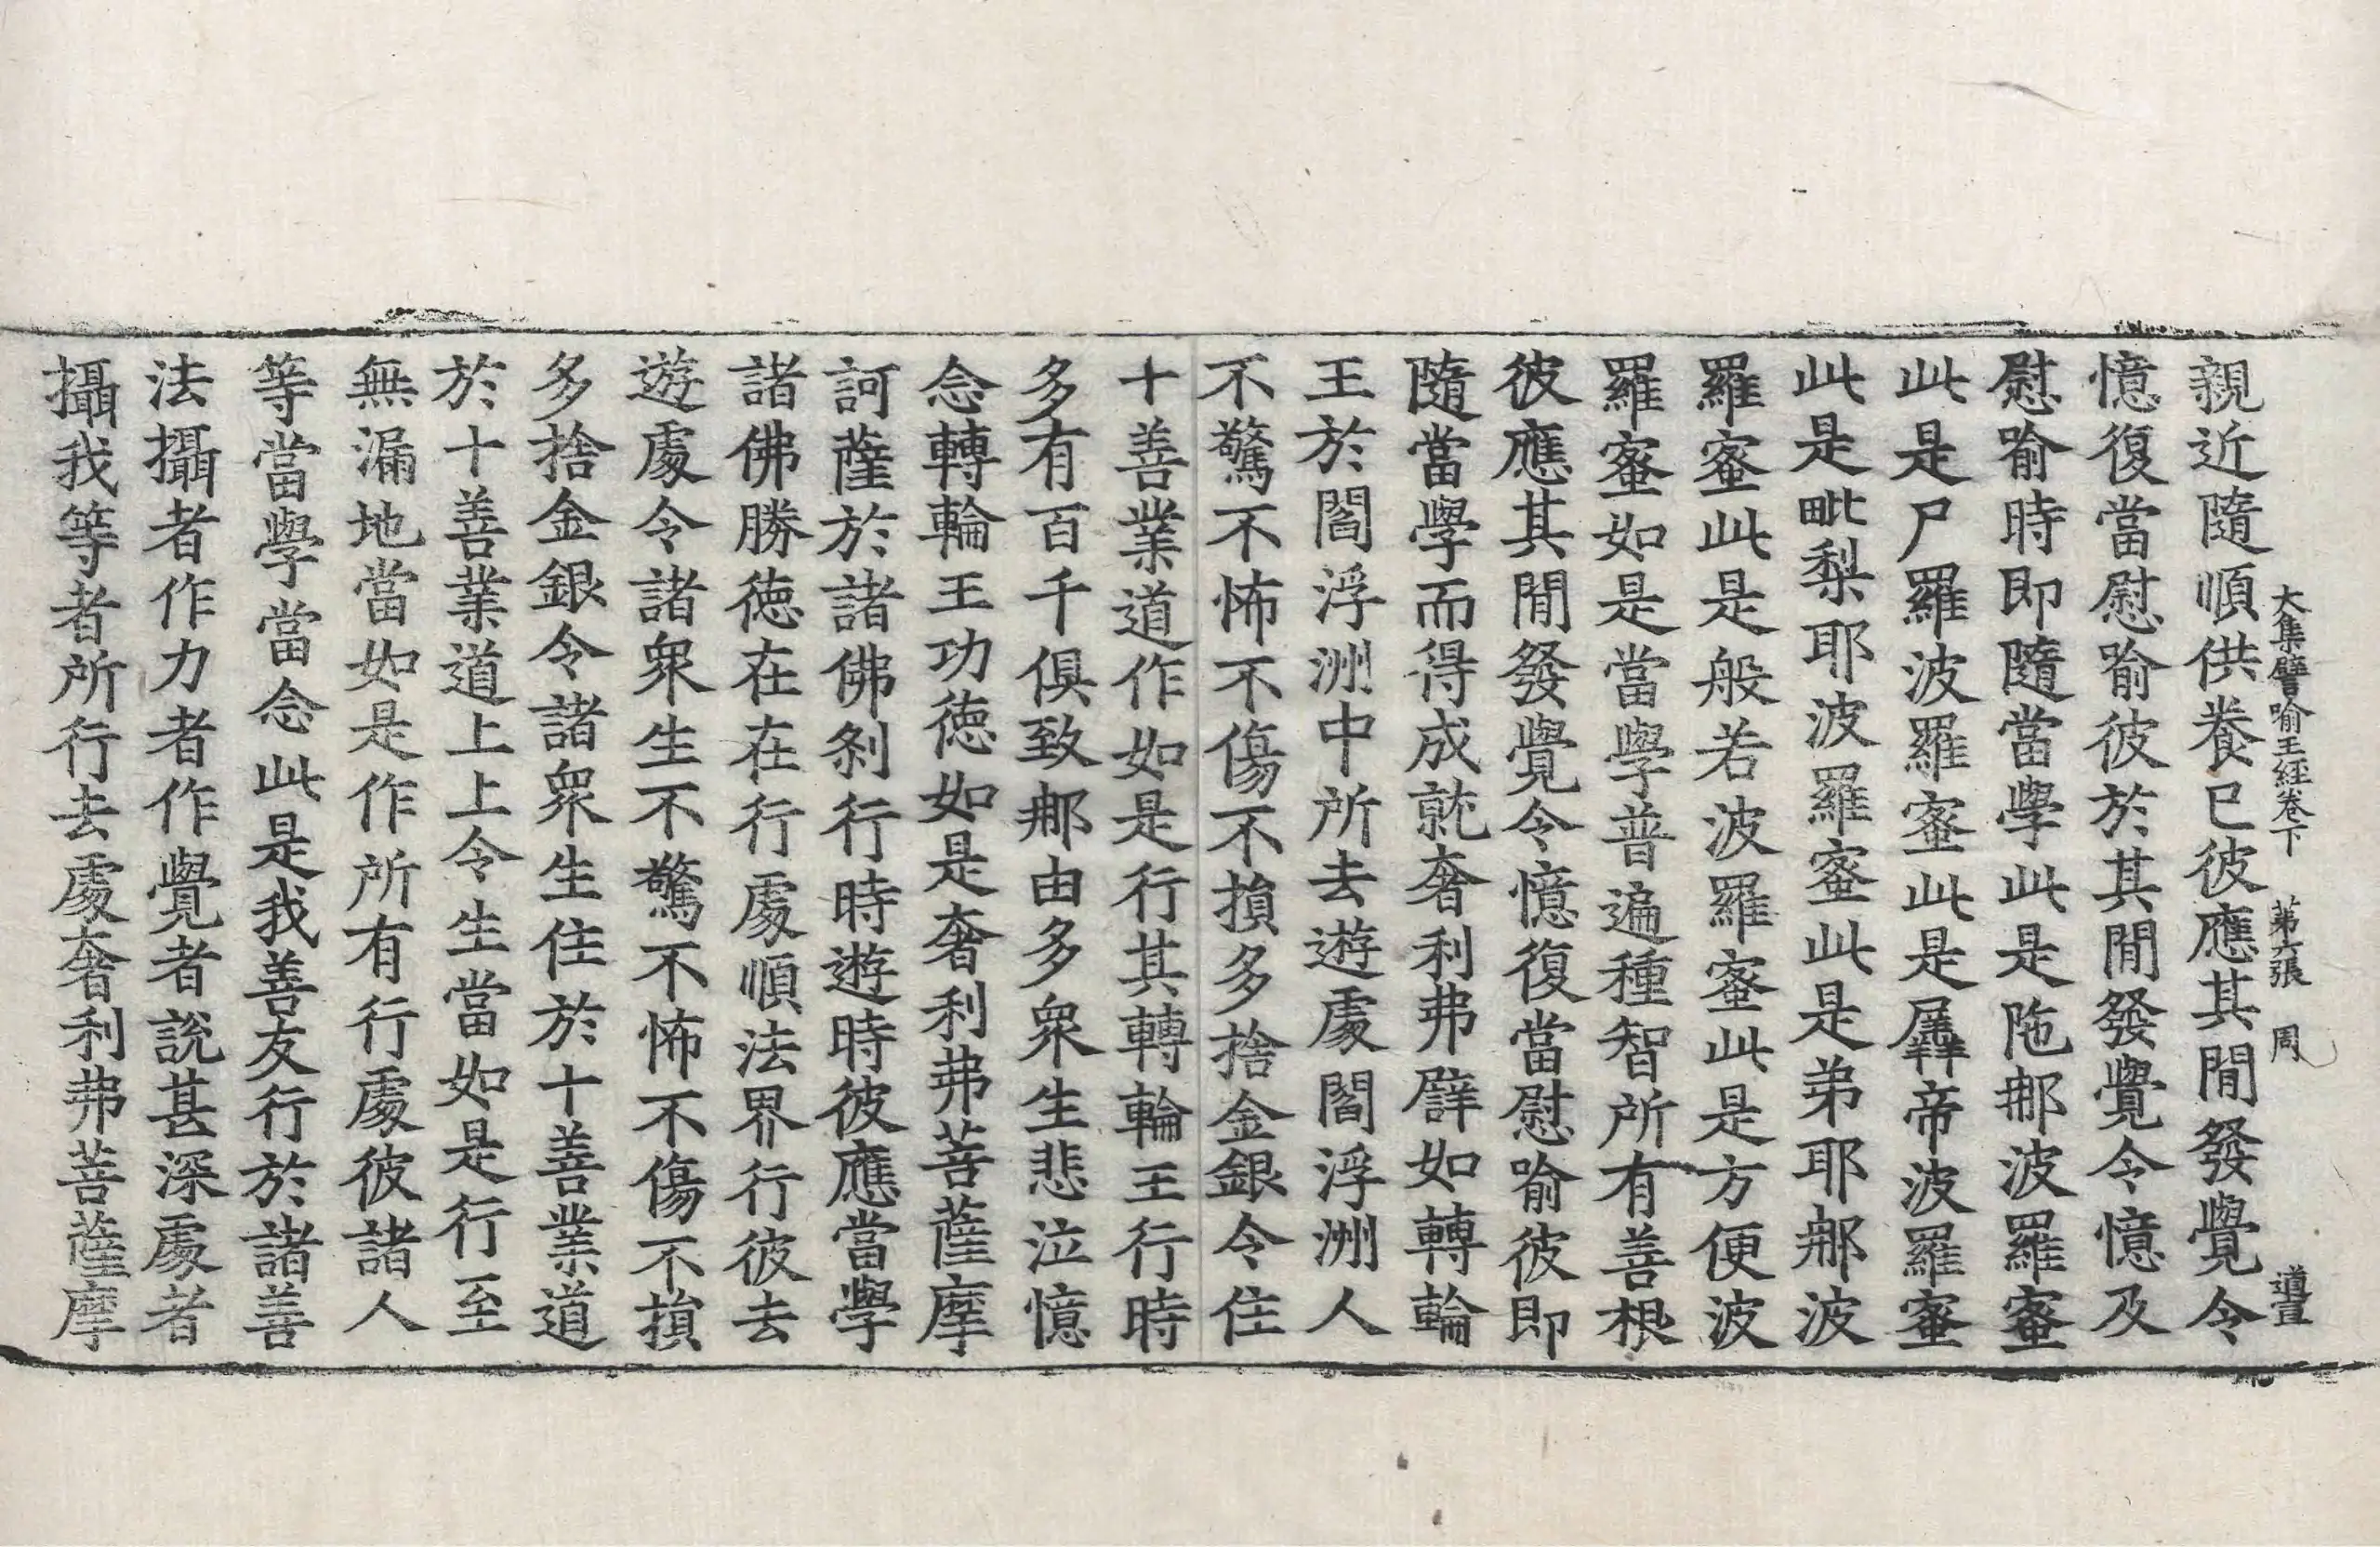 大集譬喻王經卷下　第六張　周　道亘
親近隨順供養已彼應其閒發覺令
憶復當慰喻彼於其閒發覺令憶及
慰喻時即隨當學此是陁那波羅蜜
此是尸羅波羅蜜此是羼帝波羅蜜
此是毗梨耶波羅蜜此是弟耶那波
羅蜜此是般若波羅蜜此是方便波
羅蜜如是當學普遍種智所有善根
彼應其閒發覺令憶復當慰喻彼即
隨當學而得成就奢利弗譬如轉輪
王於閻浮洲中所去遊處閻浮洲人
不驚不怖不傷不損多捨金銀令住
十善業道作如是行其轉輪王行時
多有百千俱致那由多眾生悲泣憶
念轉輪王功德如是奢利弗菩薩摩
訶薩於諸佛剎行時遊時彼應當學
諸佛勝德在在行處順法界行彼去
遊處令諸眾生不驚不怖不傷不損
多捨金銀令諸眾生住於十善業道
於十善業道上上令生當如是行至
無漏地當如是作所有行處彼諸人
等當學當念此是我善友行於諸善
法攝者作力者作覺者說甚深處者
攝我等者所行去處奢利弗菩薩摩